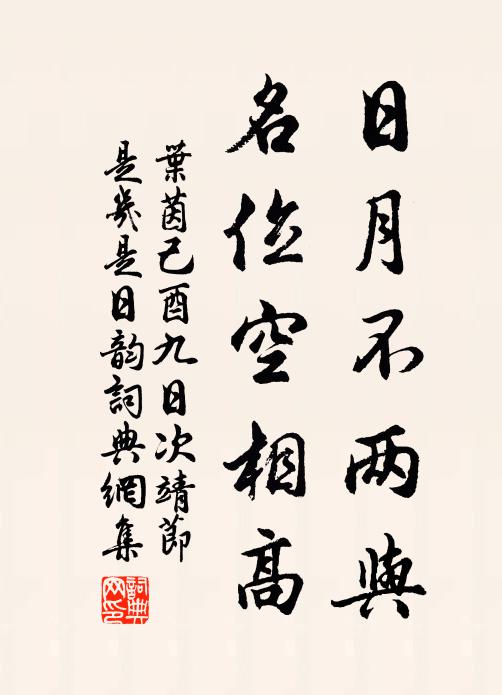 日月不两與
名位空相高
葉茵己酉九日次靖節
是歲是日韻詞典網集
詞典
网印